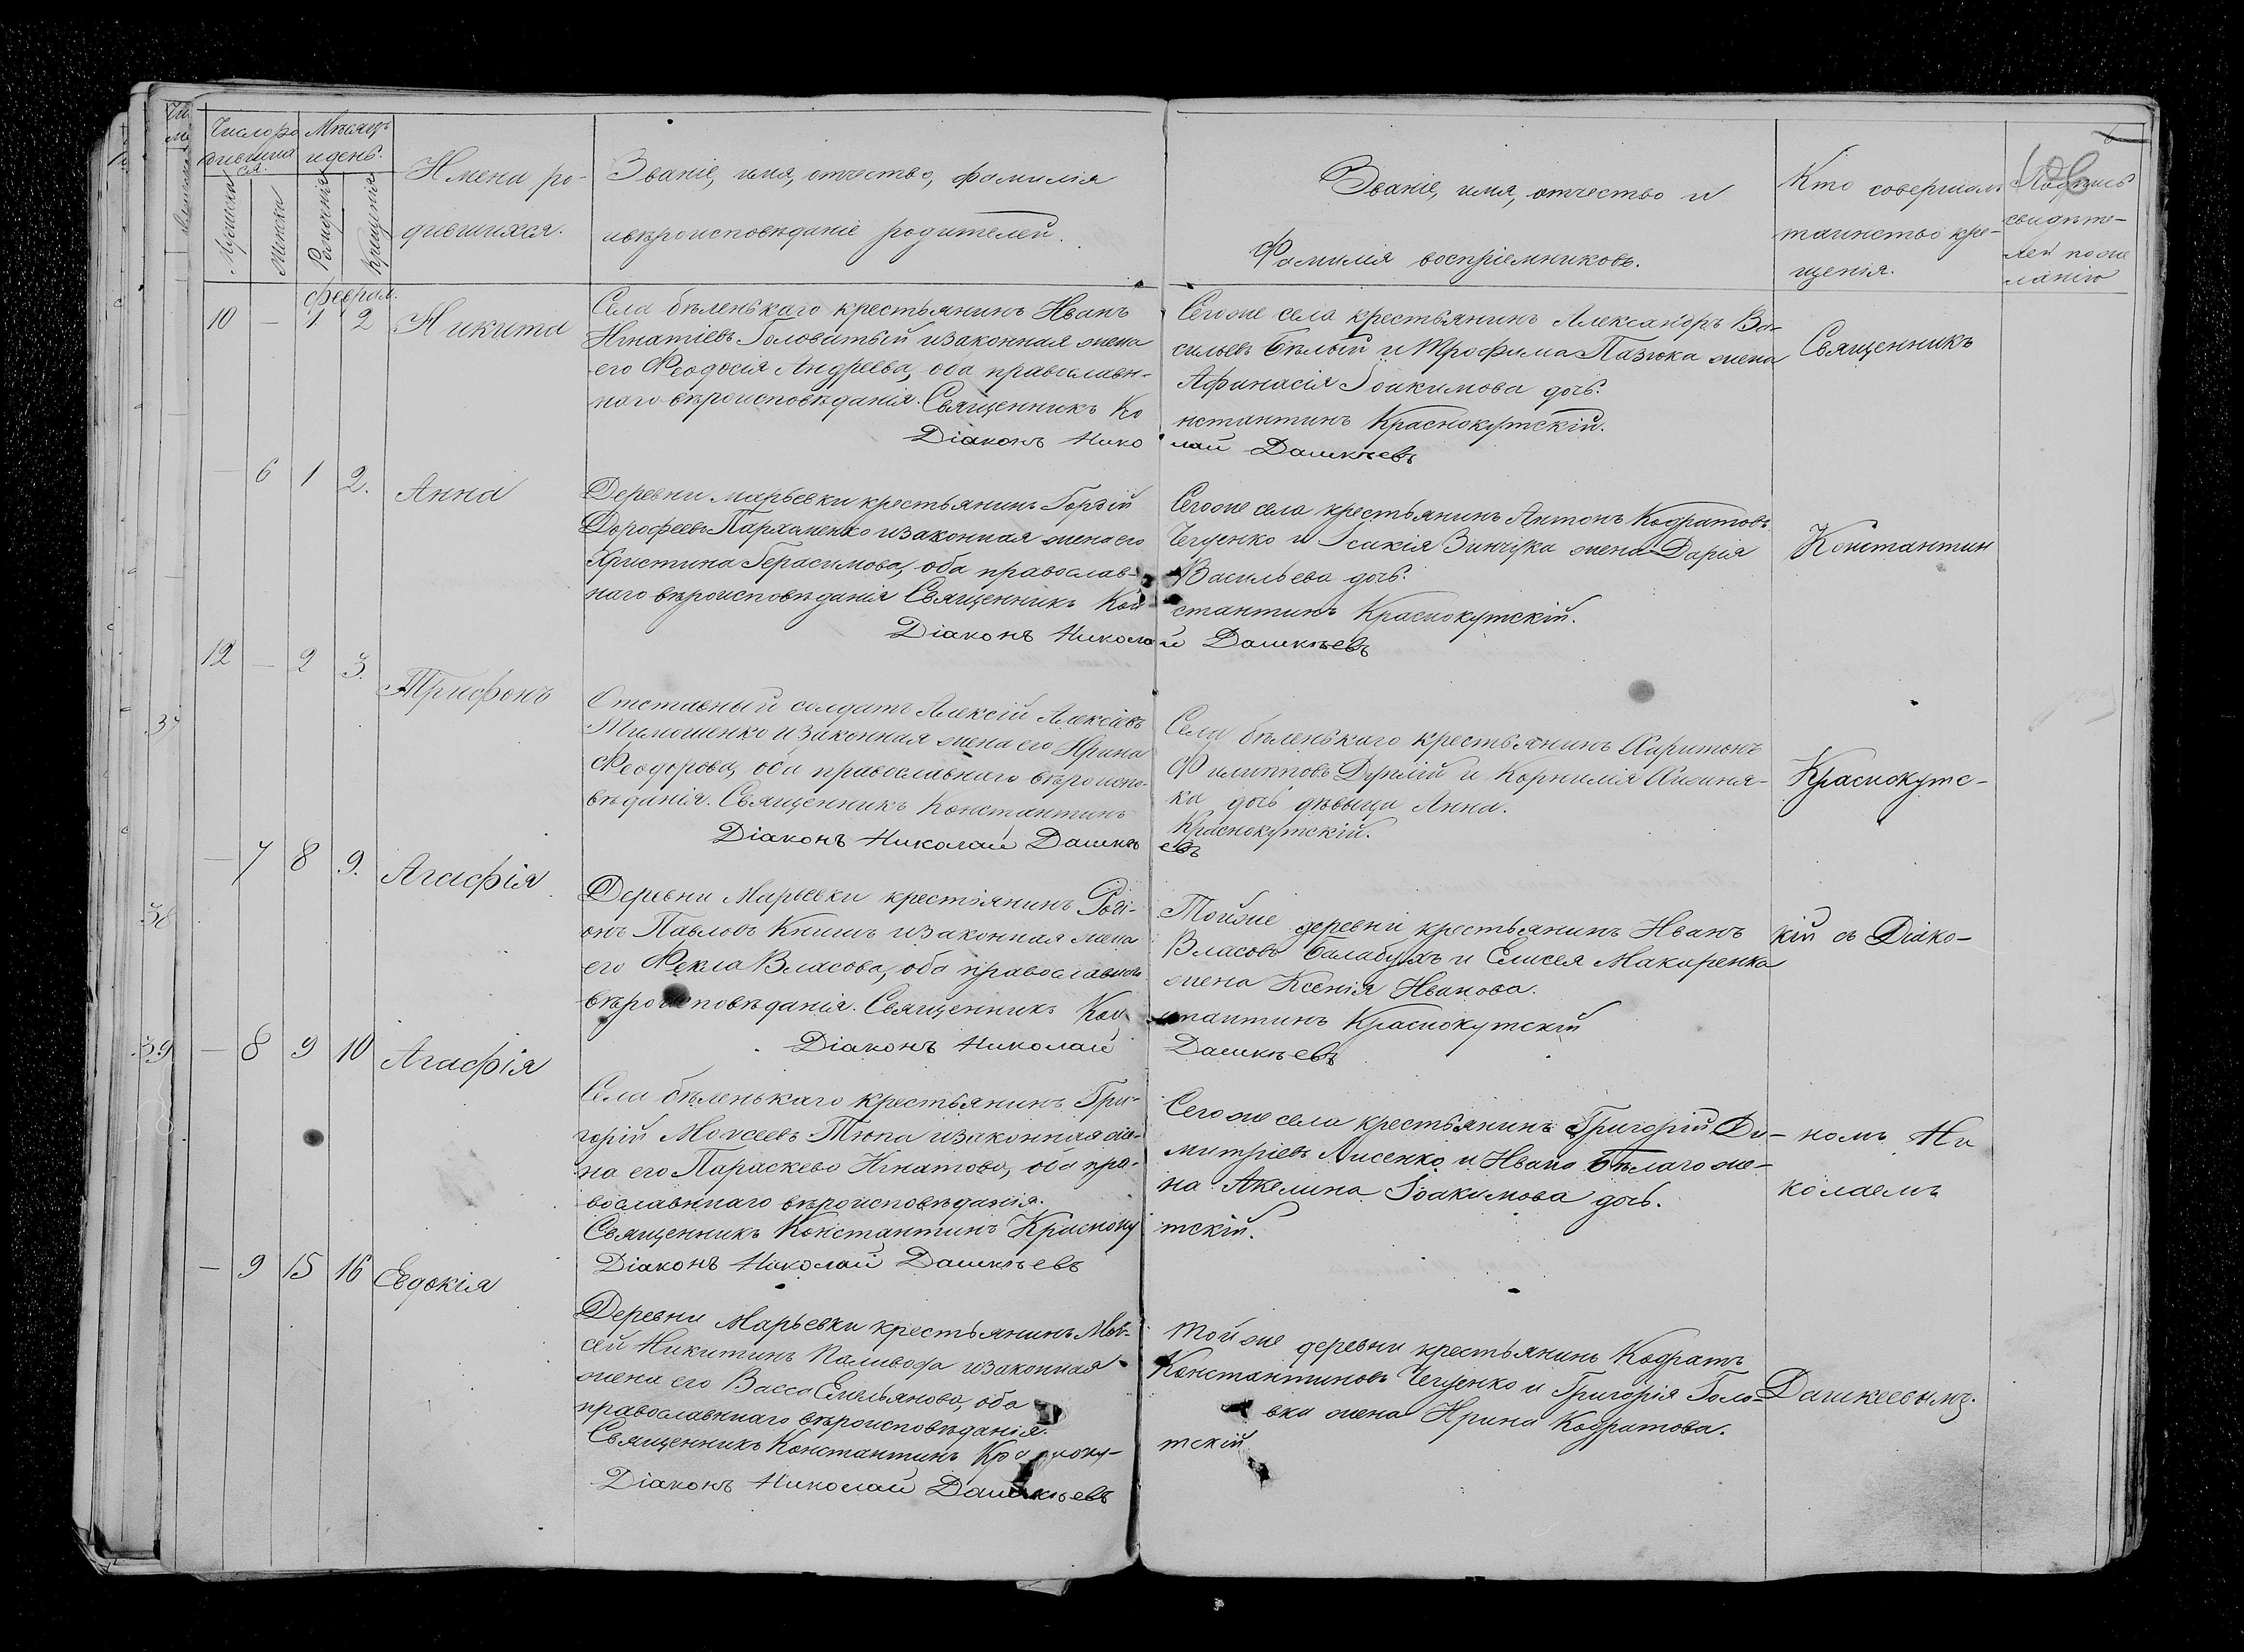 Число ро
дившихся.
Мѣсяцъ
и день.
Имена ро-
дившихся.
Званіе, имя, отчество, фамилія
и вѣроисповѣданіе родителей.
Званіе, имя, отчество и
Фамилія воспріемниковъ.
Кто совершалъ
таинство кре-
щенія.
Подпись
свидѣте-
лей по же
ланію
Мужеска
Женска
Рожденія
Крещенія
феврал.
10 — 1 2 Никита
Села бѣленькаго крестьянинъ Иванъ
Игнатіевъ Головатый и законная жена
его Феодосія Андреева, оба православн-
наго вѣроисповѣданія. Священникъ Ко
Діаконъ Нико
Сегоже села крестьянинъ Александръ Ва-
сильевъ Бѣлый и Трофима Пазюка жена
Афанасія Іоакимова дочь.
нстантинъ Краснокутскій.
лай Дашкѣевъ
Священникъ
— 6 1 2. Анна
Деревни Марьевки крестьянинъ Гордій
Дорофеевъ Пархаменко и законная жена его
Христина Герасимова, оба православ-
наго вѣроисповѣданія Священникъ Кон
Діаконъ Никола
Сегоже села крестьянинъ Антонъ Кодратовъ
Чегренко и Ісакія Зинчука жена Дарія
Васильева дочь.
стантинъ Краснокутскій.
й Дашкѣевъ
Константин
12 — 2 3. Трифонъ
Отставный солдатъ Алексій Алексіевъ
Тимошенко и законная жена его Ирина
Феодорова, оба православнаго вѣроиспо-
вѣданія. Священникъ Константинъ
Діаконъ Николай Дашкѣ
Села бѣленькаго крестьянинъ Харитонъ
Филипповъ и Корнилія
ка дочь дѣвица Анна.
Краснокутскій.
евъ
Краснокутс-
37
— 7 8 9. Агафія
Деревни Марьевки крестіянинъ Роді-
онъ Павловъ Книшъ и законная жена
его Фекла Власова, оба православнаго
вѣроисповѣданія. Священникъ Кон
Діаконъ Николай
Тойже деревні крестьянинъ Иванъ
Власовъ Балабухъ и Елисея Макаренка
жена Ксенія Иванова.
стантинъ Краснокутскій
Дашкѣевъ
кій съ Діако-
38
39
— 8 9 10 Агафія
Села бѣленькаго крестьянинъ Гри-
горій Моисеевъ Тюпа и законная же-
на его Параскева Игнатова, оба пра-
вославннаго вѣроисповѣданія.
Священникъ Константинъ Красноку
Діаконъ Николай Дашкѣевъ
Сегоже села крестьянинъ Григорій Ди-
митріевъ Лисенко и Ивана Бѣлаго же-
на Акелина Іоакимова дочь.
тскій.
номъ Ни
колаемъ
— 9 15 16 Евдокія
Деревни Марьевки крестьянинъ Мой-
сей Никитинъ Паливода и законная
жена его Васса Емельянова, оба
православннаго вѣроисповѣданія.
Священникъ Константинъ Красноку-
Діаконъ Николай Дашкѣевъ
Тойже деревни крестьянинъ Кодратъ
Константиновъ Чегренко и Григорія Голо-
вка жена Ирина Кодратова.
тскій
Дашкеевымъ.